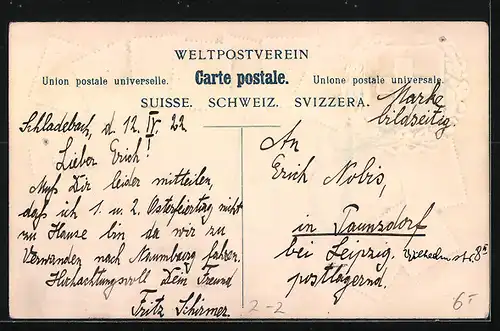 WELTPOSTVEREIN
Union postale universelle. Carte postale. Unione postale universale.
SUISSE. SCHWEIZ. SVIZZERA.
Marke
bildseitig.
Schladebach, d 12. IV. 22
Lieber Erich!
Muß Dir leider mitteilen,
daß ich 1. u. 2. Osterfeiertag nicht
zu Hause bin da wir zu
Verwanden nach Naumburg fahren.
Hochachtungsvoll Dein Freund
Fritz Schirmer.
An
Erich Nobis,
in Taunsdorf
bei Leipzig,
postlagernd.
2-2
6-